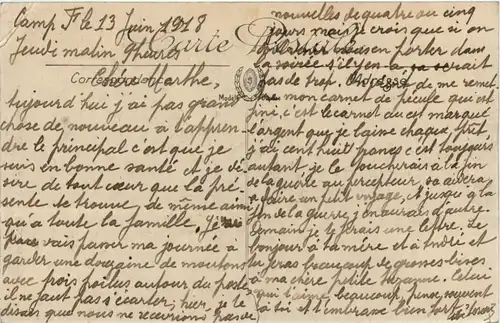 Camp F le 13 Juin 1918
Jeudi matin 9 heures
Carte Postale
Correspondance
Adresse
Chère Marthe,
aujourd'hui j'ai pas grand
chose de nouveau à t'appren-
dre le principal c'est que je
suis en bonne santé et je dé-
sire de tout cœur que la pré-
sente te trouve, de même ainsi
qu'à toute la famille. Je
vais passer ma journée à
garder une douzaine de moutons
avec trois poilus autour du poste
il ne faut pas s'écarter; hier, je te
disais que nous ne recevrions pas de
nouvelles de quatre ou cinq
jours mais je crois que si on
en porter dans
la soirée s'il y en a, ça serait
pas de trop. de me remet-
mon carnet de pécule qui est
fini, c'est le carnet où est marqué
l'argent que je laisse chaque prêt,
j'ai cent huit francs c'est toujours
autant, je le toucherais à la fin
de la guerre au percepteur, ça aidera
à faire un petit voyage, et jusqu'à la
fin de la guerre, j'en aurais d'autre.
Demain je te ferais une lettre. Le
bonjour à ta mère et à André et
tu feras beaucoup de grosses bises
à ma chère petite Suzanne. Celui
qui t'aime beaucoup, pense souvent
à toi et t'embrasse bien fort